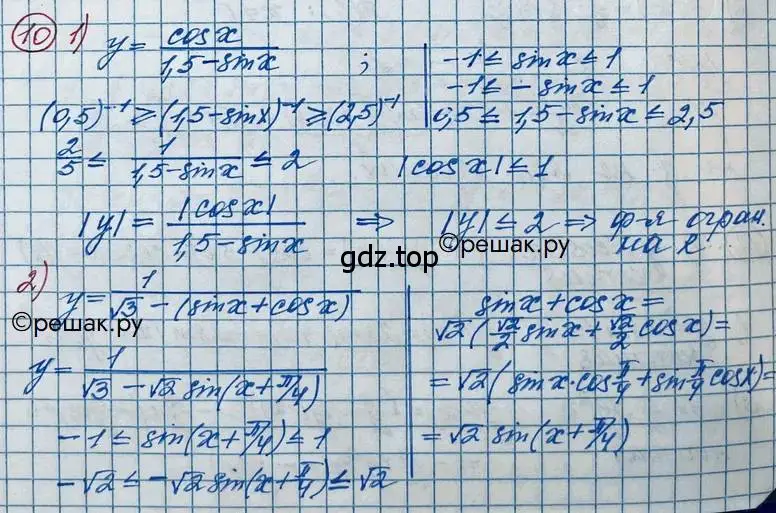 10 1) y = cosx / (1,5 - sinx) ;
-1 ≤ sinx ≤ 1
-1 ≤ -sinx ≤ 1
0,5 ≤ 1,5 - sinx ≤ 2,5
(0,5)⁻¹ ≥ (1,5 - sinx)⁻¹ ≥ (2,5)⁻¹
2/5 ≤ 1/(1,5 - sinx) ≤ 2 |cosx| ≤ 1
|y| = |cosx| / (1,5 - sinx) ⇒ |y| ≤ 2 ⇒ ф-я огран.
на R
©решак.ру
gdz.top
2) y = 1 / (√3 - (sinx + cosx))
©решак.ру
y = 1 / (√3 - √2 sin(x + π/4))
-1 ≤ sin(x + π/4) ≤ 1
-√2 ≤ -√2 sin(x + π/4) ≤ √2
sinx + cosx =
√2 (√2/2 sinx + √2/2 cosx) =
= √2 (sinx · cos π/4 + sin π/4 cosx) =
= √2 sin(x + π/4)